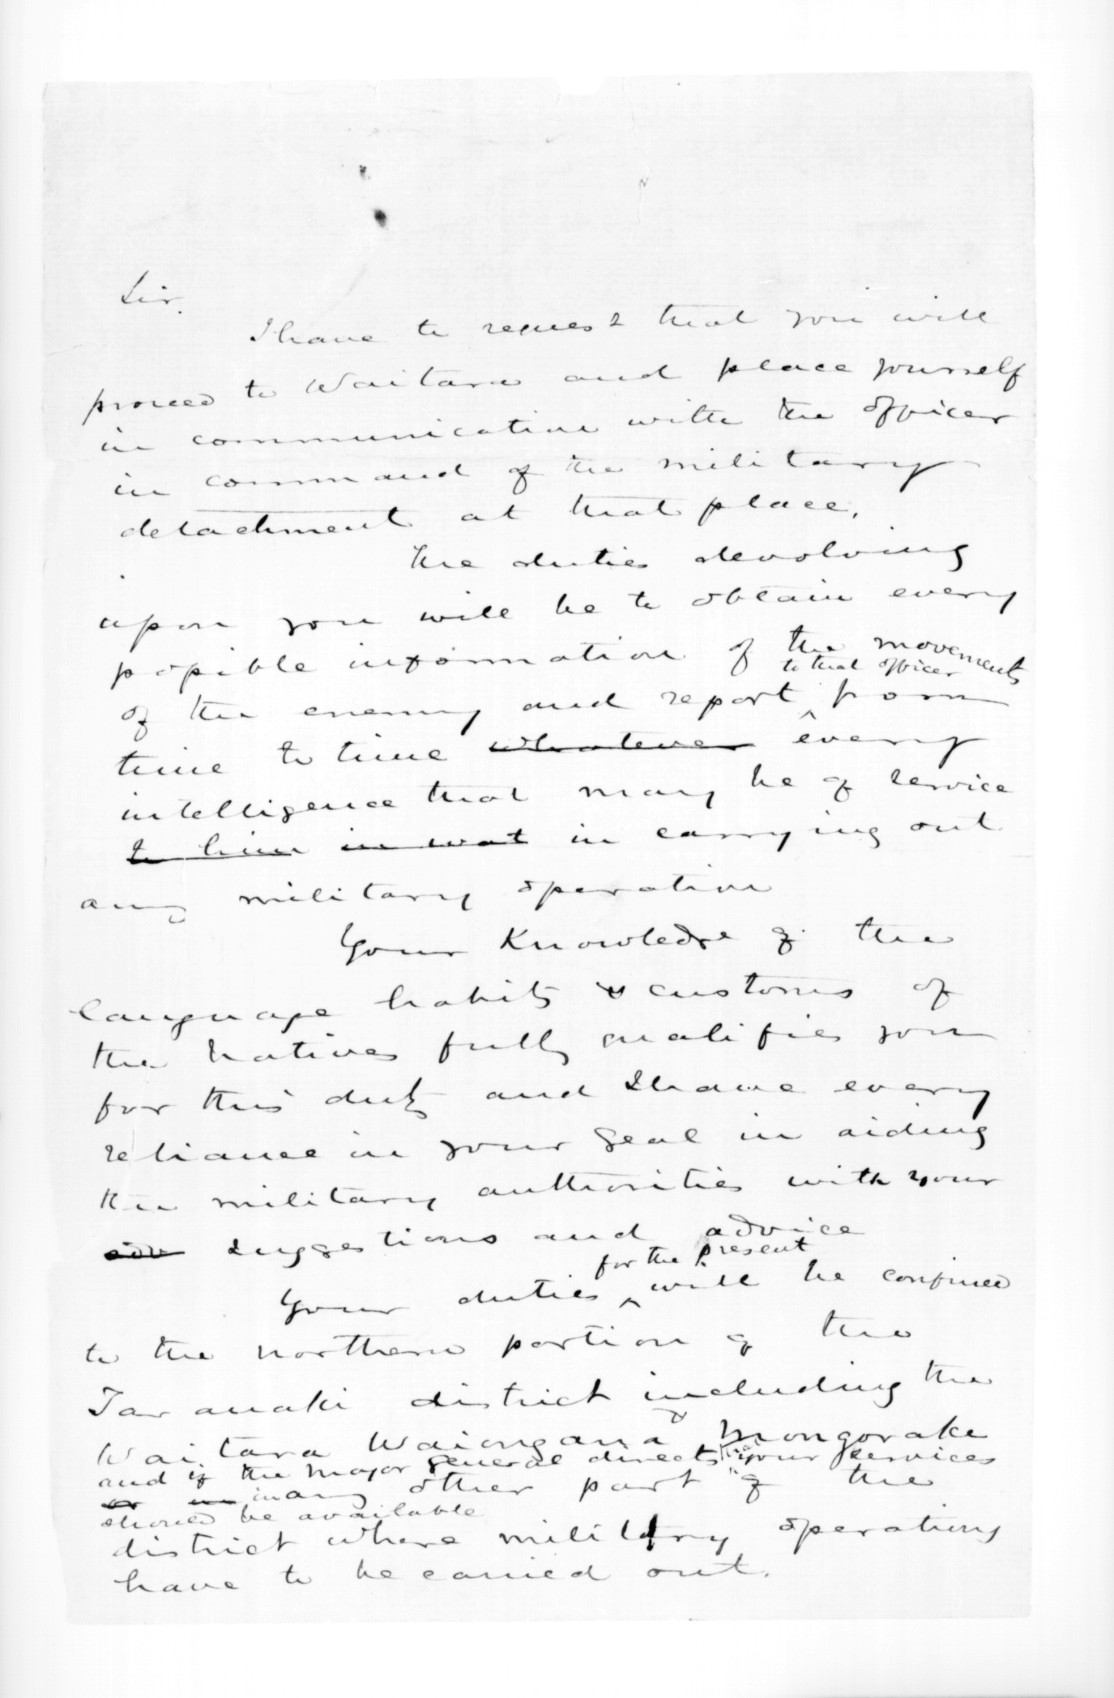 Sir.
I have to request that you will
proceed to Waitara and place yourself
in communication with the officer
in command of the military
detachment at that place.
The duties devolving
upon you will be to obtain every
possible information of the movements
to that officer
of the enemy and report ^ from
time to time whatever every
intelligence that may be of service
to him in wat in carrying out
any military operation
Your Knowledge of the
language habits & customs of
the Natives fully qualifies you
for this duty and I have every
reliance in your zeal in aiding
the military authorities with your
suggestions and advice
for the present
Your duties ^ will be confined
to the northern portion of the
Taranaki district including the
Waitara Waiongana & Mongorake
and if the Major General directs your services
or in in any other part of the
should be available
district where military operations
have to be carried out.